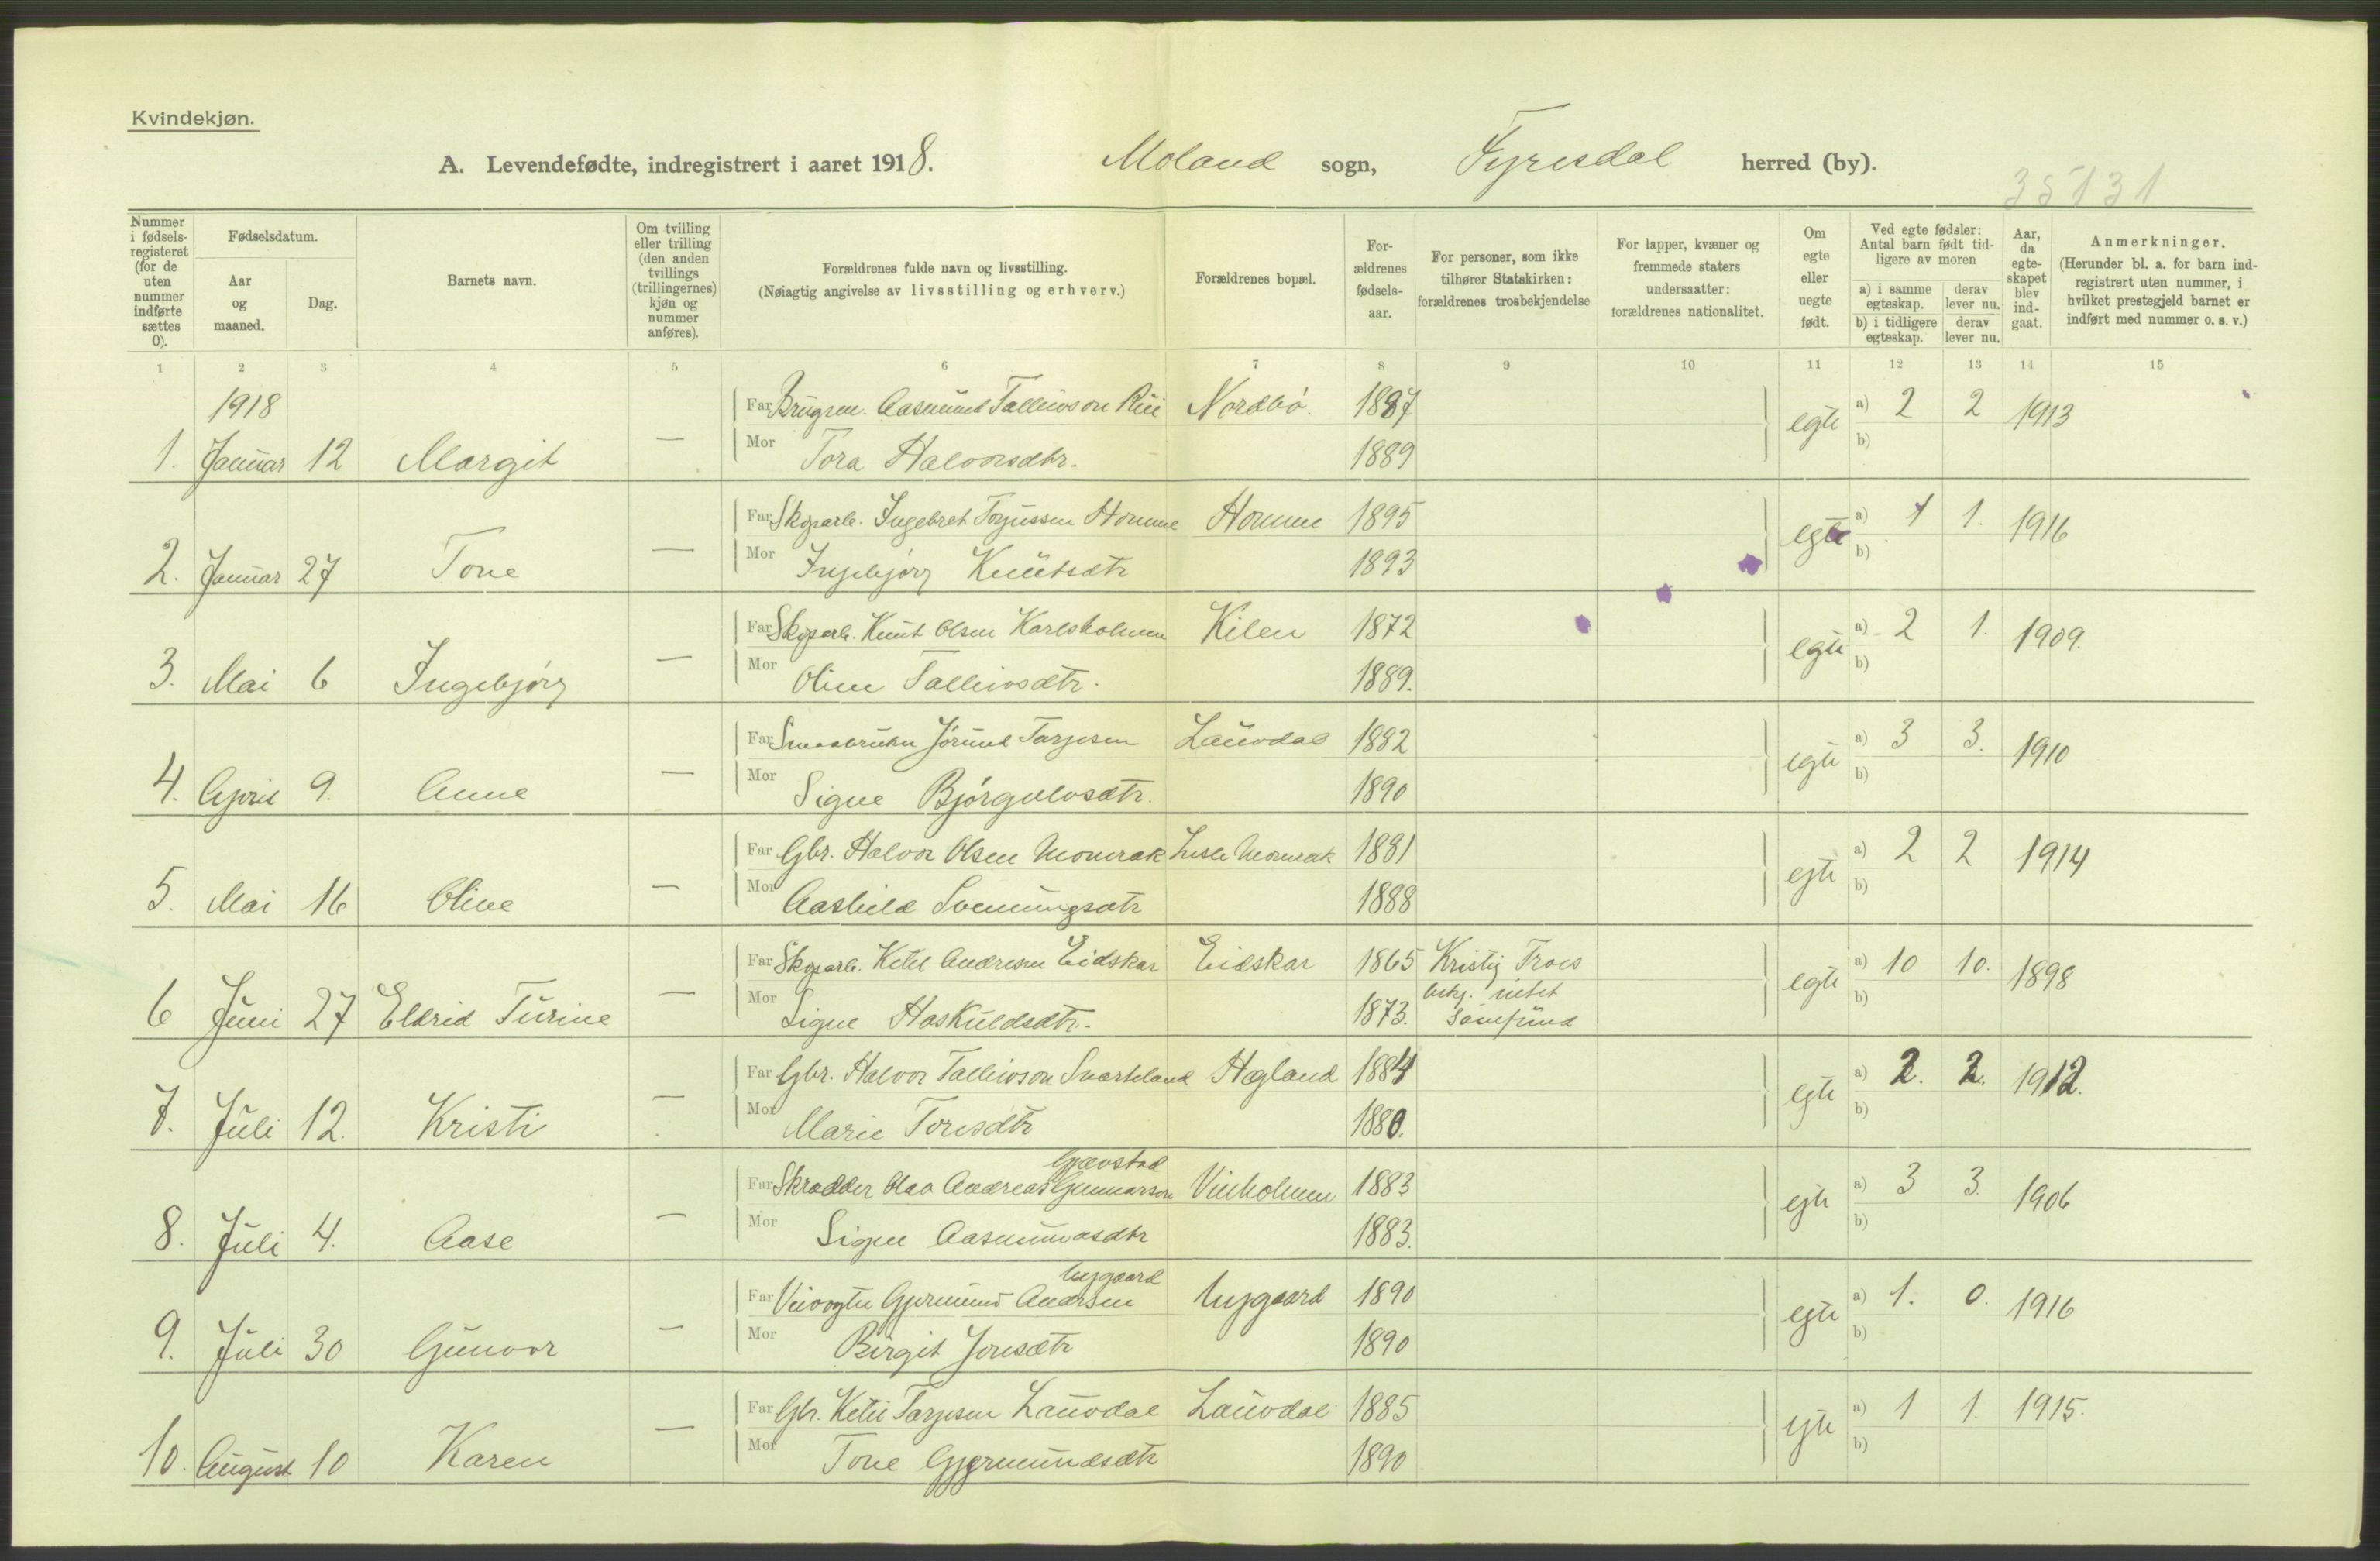 Kvindekjøn.
A. Levendefødte, indregistrert i aaret 1918. Moland sogn, Fyresdal herred (by).
35131
Nummer i fødsels-registeret (for de uten nummer indførte sættes 0).
Fødselsdatum.
Aar og maaned.
Dag.
Barnets navn.
Om tvilling eller trilling (den anden tvillings (trillingernes) kjøn og nummer anføres).
Forældrenes fulde navn og livsstilling.
(Nøiagtig angivelse av livsstilling og erhverv.)
Forældrenes bopæl.
For-ældrenes fødsels-aar.
For personer, som ikke tilhører Statskirken: forældrenes trosbekjendelse
For lapper, kvæner og fremmede staters undersaatter: forældrenes nationalitet.
Om egte eller uegte født.
Ved egte fødsler: Antal barn født tid-ligere av moren
a) i samme egteskap. derav lever nu.
b) i tidligere egteskap. derav lever nu.
Aar, da egte-skapet blev ind-gaat.
Anmerkninger.
(Herunder bl. a. for barn ind-registrert uten nummer, i hvilket prestegjeld barnet er indført med nummer o. s. v.)
1 2 3 4 5 6 7 8 9 10 11 12 13 14 15
1918 Far Brugsm. Aasmund Tallivson Rui Nordbø. 1887 egte a) 2 2 1913
1. Januar 12 Margit — Mor Tora Halvorsdtr. 1889 b)
Far Skogsarb. Ingebret Torjussen Homme Homme 1895 egte a) 1 1. 1916
2. Januar 27 Tone — Mor Ingebjørg Knutsdtr 1893 b)
Far Skogsarb. Knut Olsen Karlsholmen Kilen 1872 egte a) 2 1. 1909.
3. Mai 6 Ingebjørg — Mor Oline Tallivsdtr. 1889. b)
Far Smaabruker Jørund Tarjesen Lauvdal 1882 egte a) 3 3. 1910
4. April 9. Anne — Mor Signe Bjørgulvsdtr. 1890 b)
Far Gbr. Halvor Olsen Momrak Lisle Momrak 1881 egte a) 2 2 1914
5. Mai 16 Oline — Mor Aashild Sveinungsdtr 1888 b)
Far Skogsarb. Ketil Andresen Eidskar Eidskar 1865 Kristig Troes egte a) 10 10. 1898
6 Juni 27 Eldrid Turine — Mor Signe Haskuldsdtr. 1873. samfund b)
Far Gbr. Halvor Tallivson Svarteland Hegland 1884 egte a) 2. 2. 1912.
7. Juli 12. Kristi — Mor Marie Toresdtr 1880. b)
Grævstad
Far Skrædder Olav Andreas Gunnarson Vikholmen 1883 egte a) 3 3. 1906
8. Juli 4. Aase — Mor Signe Aasmundsdtr 1883. b)
Nygaard
Far Veivogter Gjermund Andersen Nygaard 1890 egte a) 1. 0. 1916
9. Juli 30 Gunvor — Mor Birgit Jonsdtr 1890 b)
Far Gbr. Ketil Tarjesen Lauvdal Lauvdal 1885 egte a) 1 1. 1915.
10. August 10 Karen — Mor Tone Gjermundsdtr 1890 b)